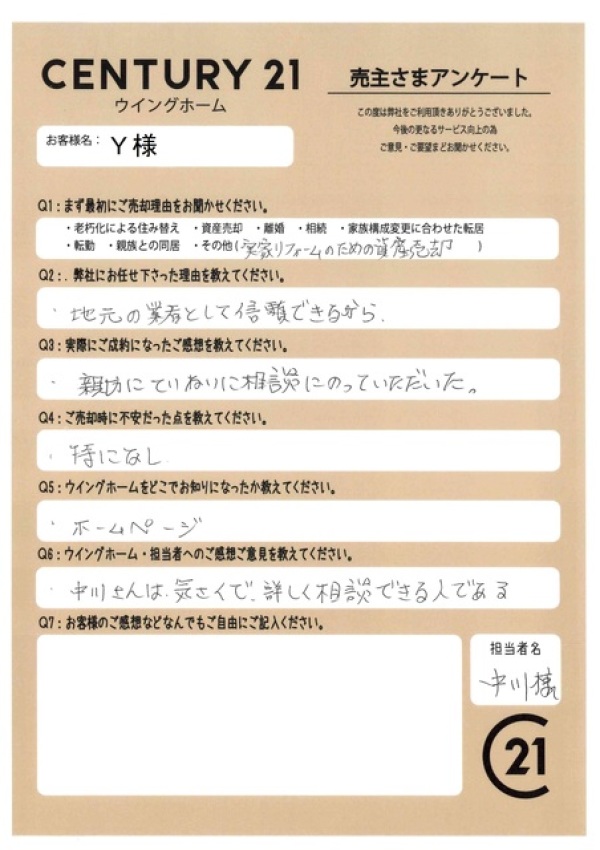 CENTURY 21
ウイングホーム
売主さまアンケート
この度は弊社をご利用頂きありがとうございました。
今後の更なるサービス向上の為
ご意見・ご要望までお聞かせください。
お客様名： Y様
Q1：まず最初にご売却理由をお聞かせください。
・老朽化による住み替え ・資産売却 ・離婚 ・相続 ・家族構成変更に合わせた転居
・転勤 ・親族との同居 ・その他(実家リフォームのための資産売却 )
Q2：．弊社にお任せ下さった理由を教えてください。
・地元の業者として信頼できるから．
Q3：実際にご成約になったご感想を教えてください。
・親切にていねいに相談にのっていただいた。
Q4：ご売却時に不安だった点を教えてください。
・特になし
Q5：ウイングホームをどこでお知りになったか教えてください。
・ホームページ
Q6：ウイングホーム・担当者へのご感想ご意見を教えてください。
・中川さんは、気さくで、詳しく相談できる人である
Q7：お客様のご感想などなんでもご自由にご記入ください。
担当者名
中川様
C21